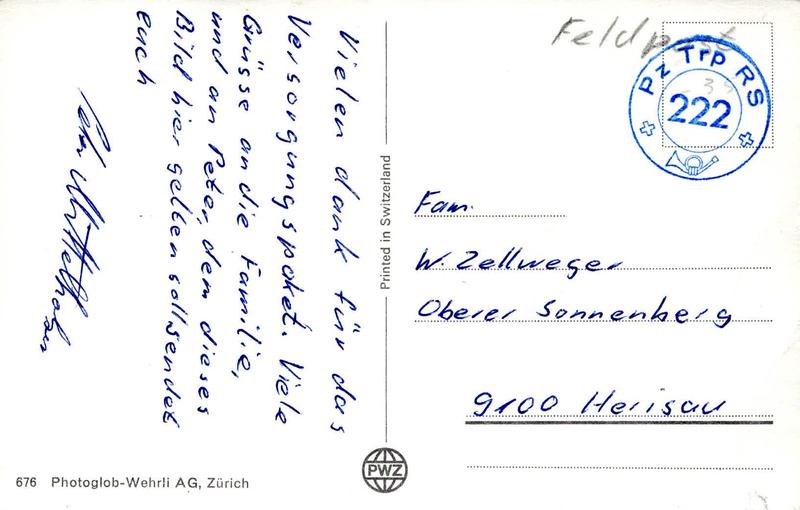 Vielen dank für das
Versorgungspaket. Viele
Grüsse an die Familie,
und an Peter, dem dieses
Bild hier gelten soll sendet
euch
Printed in Switzerland
Feldpost
Pz Trp RS
222
Fam.
W. Zellweger
Oberer Sonnenberg
9100 Herisau
PWZ
676 Photoglob-Wehrli AG, Zürich